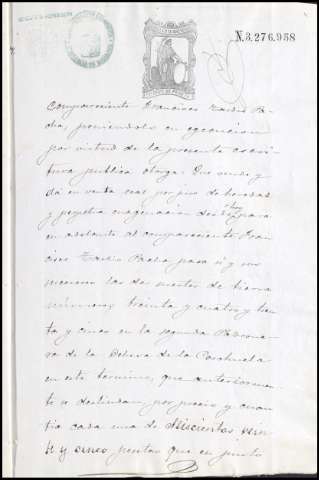 N.3,276,958
compareciente Francisco
poniendolo en egecucion
por virtud de la presente escri-
tura publica otorga: Que vende y
dá en venta real por juro de heredad
y perpetua enagenacion desde hoy para
en adelante al compareciente Fran-
cisco para si y
las dos suertes de tierra
números, treinta y cuatro y trein-
ta y cinco en la segunda
de la Dehesa de la
en este termino, que anteriormen-
te se deslindan, por precio y cuan-
tia cada una de Seiscientas vein-
te y cinco pesetas que en junto